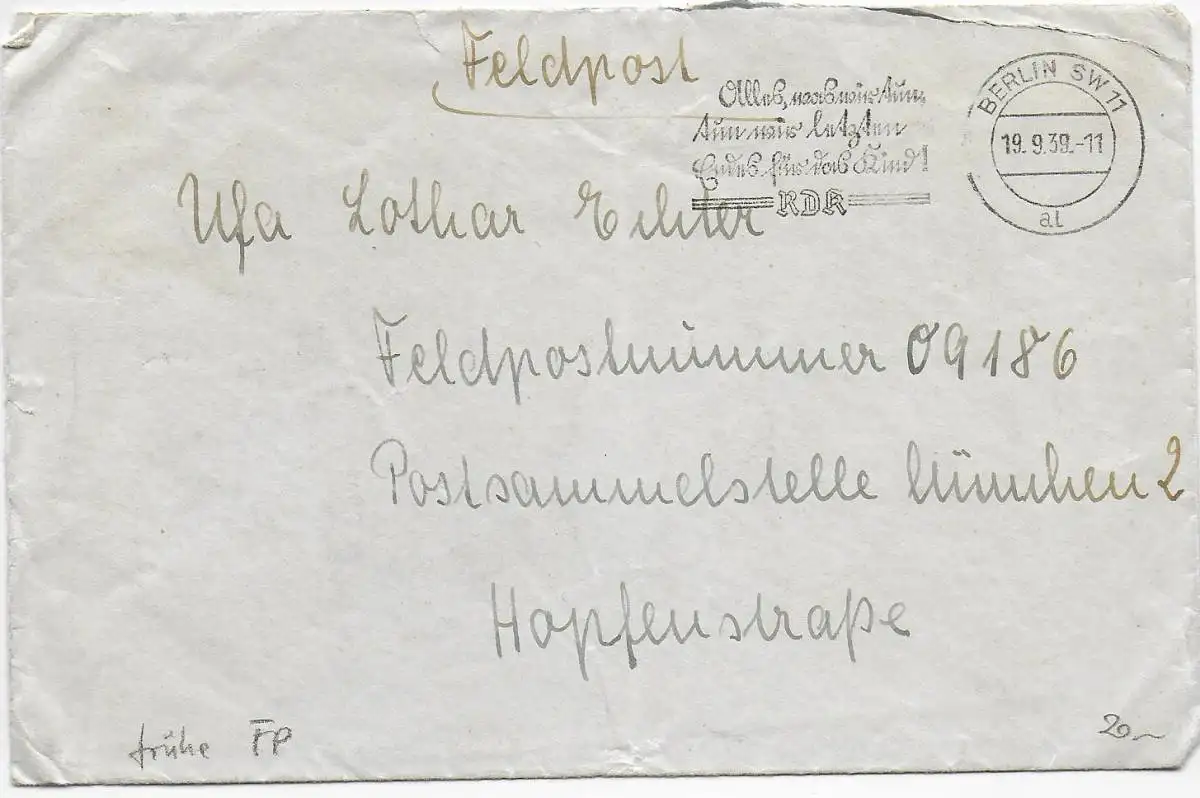 Feldpost
Alles, was wir tun,
tun wir letzten
Endes für das Kind!
RDK
BERLIN SW 11
19. 9. 39.-11
al
Ufa Lothar
Feldpostnummer 09186
Postsammelstelle München 2
Hopfenstraße
frühe FP
20,-